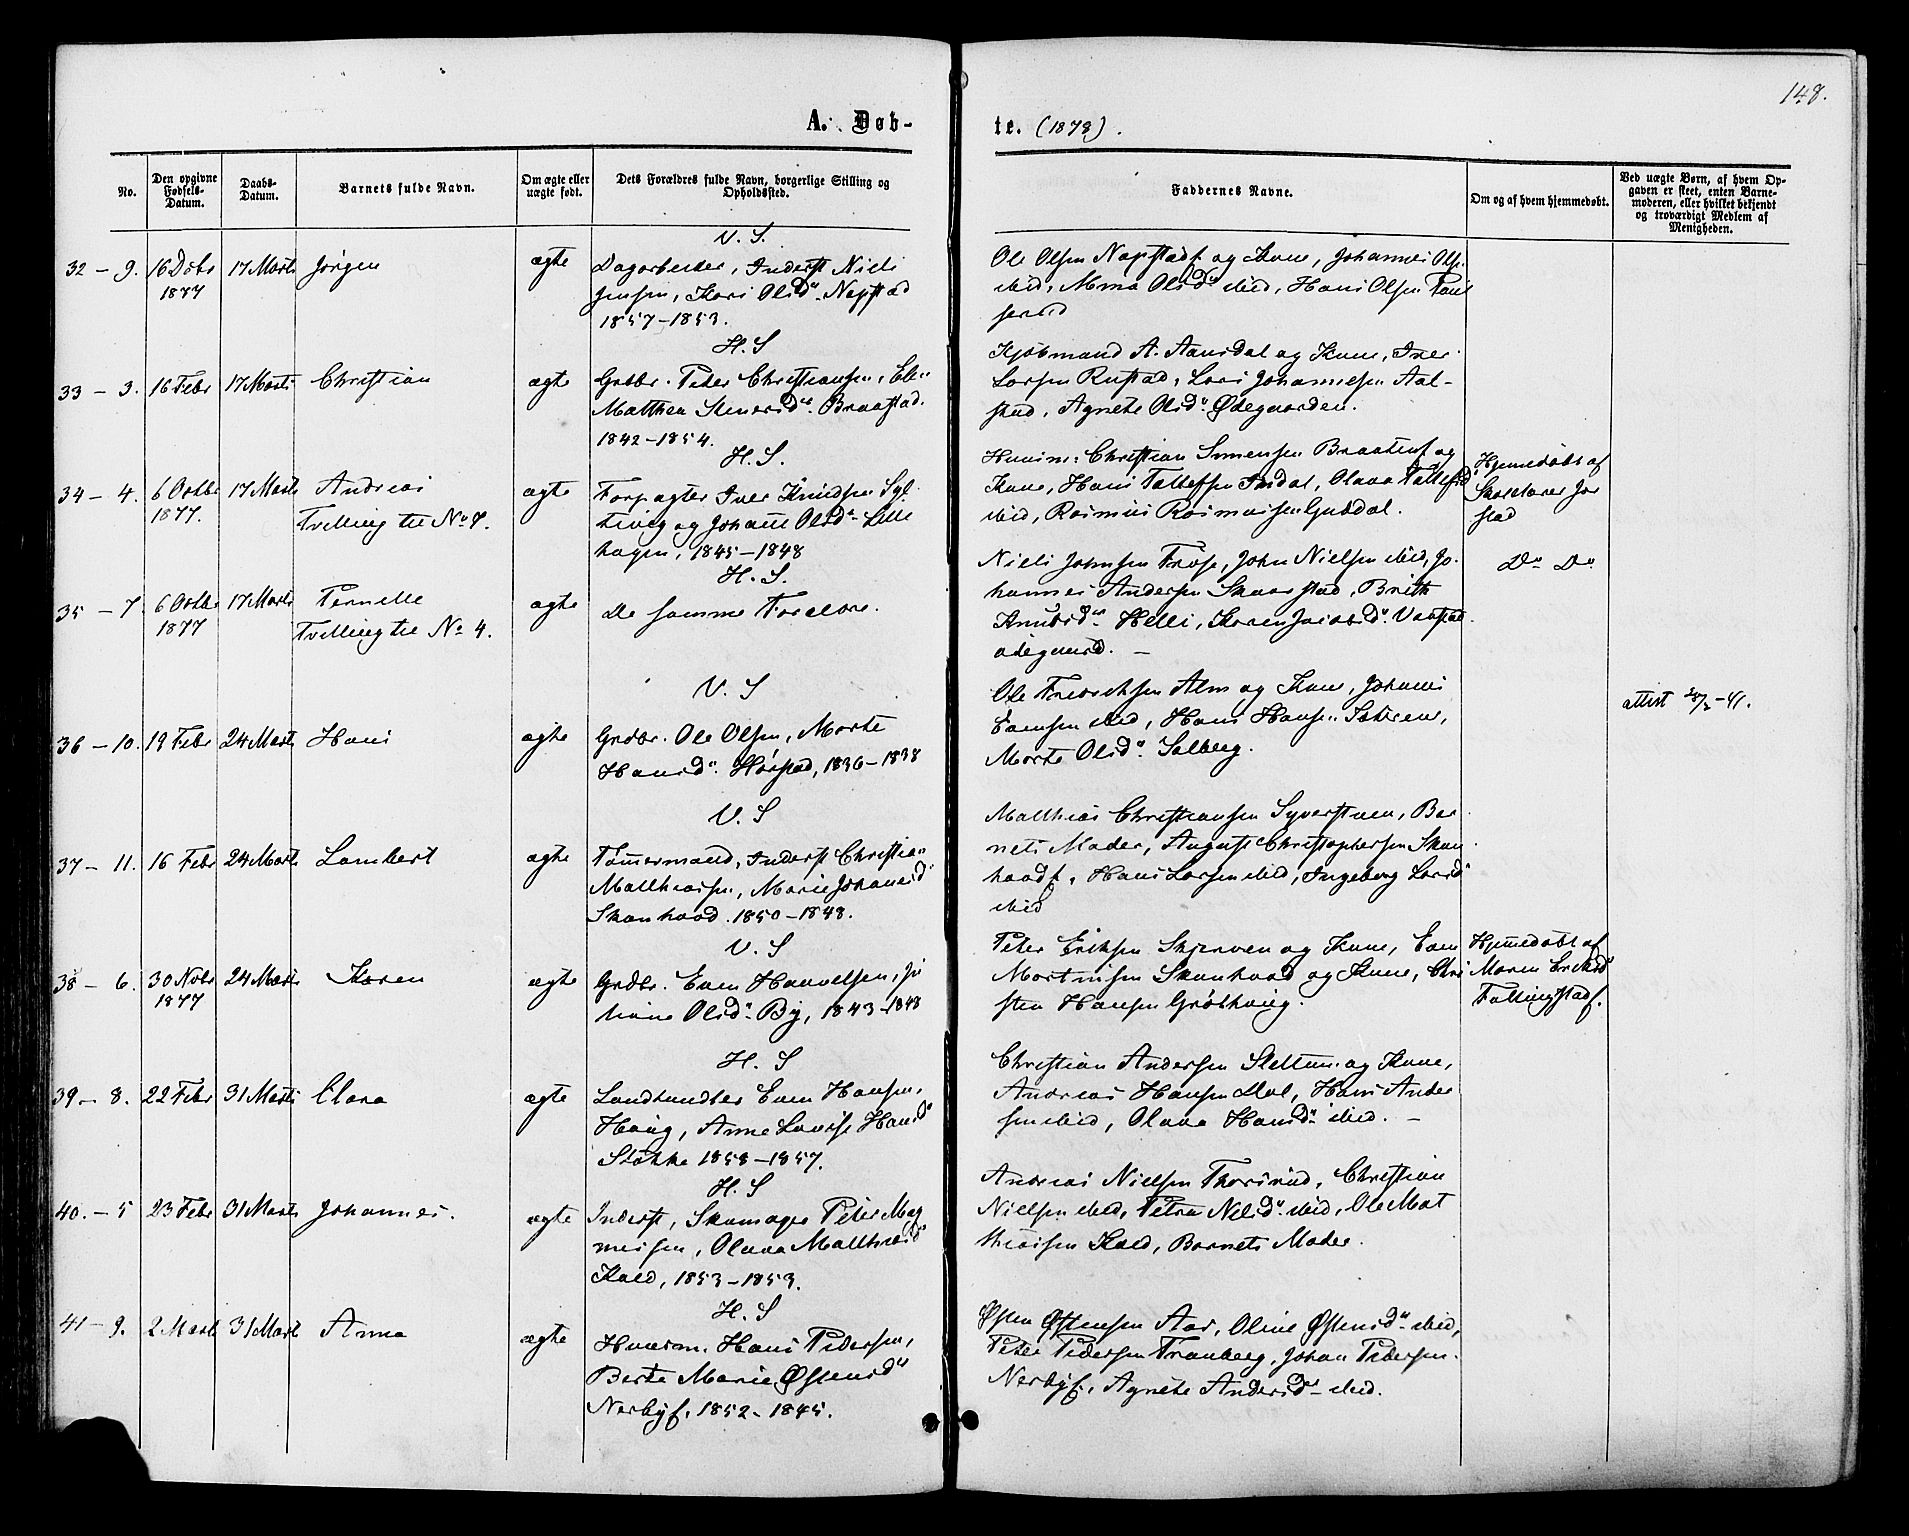 148.
A. Døb-
te. (1878).
No.
Den opgivne Fødsels-Datum.
Daabs-Datum.
Barnets fulde Navn.
Om ægte eller uægte født.
Dets Forældres fulde Navn, borgerlige Stilling og Opholdssted.
Faddernes Navne.
Om og af hvem hjemmedøbt.
Ved uægte Børn, af hvem Opgaven er skeet, enten Barnemoderen, eller hvilket bekjendt og troværdigt Medlem af Menigheden.
V. S.
32 – 9. 16 Dcbr 1877 17 Marts Jørgen ægte
Dagarbeider, Inderst Niels
Jensen, Kari Olsdr. Napstad
1857–1853.
Ole Olsen Napstadf. og Kone, Johannes Ols.
ibid, Olsdr ibid, Hans Olsen
H. S
33 – 3. 16 Febr 17 Marts Christian ægte
Grdbr. Peter Christiansen, Elen
Matthea Simensdr. Braastad.
1842–1854.
Kjøbmand A. Aansdal og Kone, Iver
Larsen Rustad, Lars Johannesen Aal-
stad, Agnete Olsdr. Ødegaarden.
H. S.
34 – 4. 6 Octbr 1877. 17 Marts Andreas ægte
Tvilling til No 7.
Forpagter Iver Knudsen Syl
og Johanne Olsdr. Lille
hagen, 1845–1848
Huusm. Christian Simensen Braatenf og
Kone, Hans Tollefsen Indal, Olava Tollefsd
ibid, Rasmus Rasmussen Gubdal.
Hjemmedøbt af
Skolelærer Jør
stad
H. S.
35 – 7. 6 Octbr 1877 17 Marts Pernille ægte
Tvilling til No 4.
De samme Forældre.
Niels Johnsen Frøse, John Nielsen ibid, Jo-
hannes Andersen Skaarstad, Brith
Amundsdr. Helli, Karen Jacobsdr.
ødegaard. –
Do Do
V. S
36 – 10. 19 Febr 24 Marts Hans ægte
Grdbr. Ole Olsen, Marte
Hansdr. Hørstad, 1836–1838
Ole Fredriksen Alm og Kone, Johannes
Evensen ibid, Hans Hansen
Marte Olsdr. Solberg.
attest -41.
V. S
37 – 11. 16 Febr 24 Marts Lambert ægte
Tømmermand, Inderst Christian
Matthiasen, Marie Johansd
Skanhaad. 1850–1848.
Matthias Christiansen Syverstuen, Bar
nets Moder, August Christophersen Skan
haadf, Hans Larsen ibid, Ingeborg Larsd
ibid
V. S
38 – 6. 30 Nvbr 1877 24 Marts Karen ægte
Grdbr. Even Haavelsen, Ju
liane Olsdr. By, 1843–1848
Peter Eriksen Skjerven og Kone, Even
Mortinsen Skanhaad og Kone, Chri
sten Hansen Grøthaug.
Hjemmedøbt af
Maren Eriksd
Fallingstadf.
H. S
39 – 8. 22 Febr 31 Marts Clara ægte
Landhandler Even Hansen,
Haug, Anne Lovise Hansd
Stokke 1858–1857.
Christian Andersen Slettum og Kone,
Andreas Hansen Hol, Hans Ander
sen ibid, Olava Hansdr ibid. –
H. S
40. – 5 23 Febr 31 Marts Johannes. ægte
Inderst, Skomager Peter Mag
nessen, Olava Matthiasd
Kald, 1853–1853.
Andreas Nielsen Thorsrud, Christian
Nielsen ibid, Petra Nilsdr ibid, Ole Mat
thiassen Kald, Barnets Moder.
H. S
41 – 9. 2 Marts 31 Marts Anna ægte
Huusm. Hans Pedersen,
Berte Marie Østensdr
Nerbyf, 1852–1845.
Østen Østensen Aas, Oline Østensdr ibid,
Peter Pedersen Tranberg, Johan Pedersen
Nerbyf, Agnete Andersdr ibid.